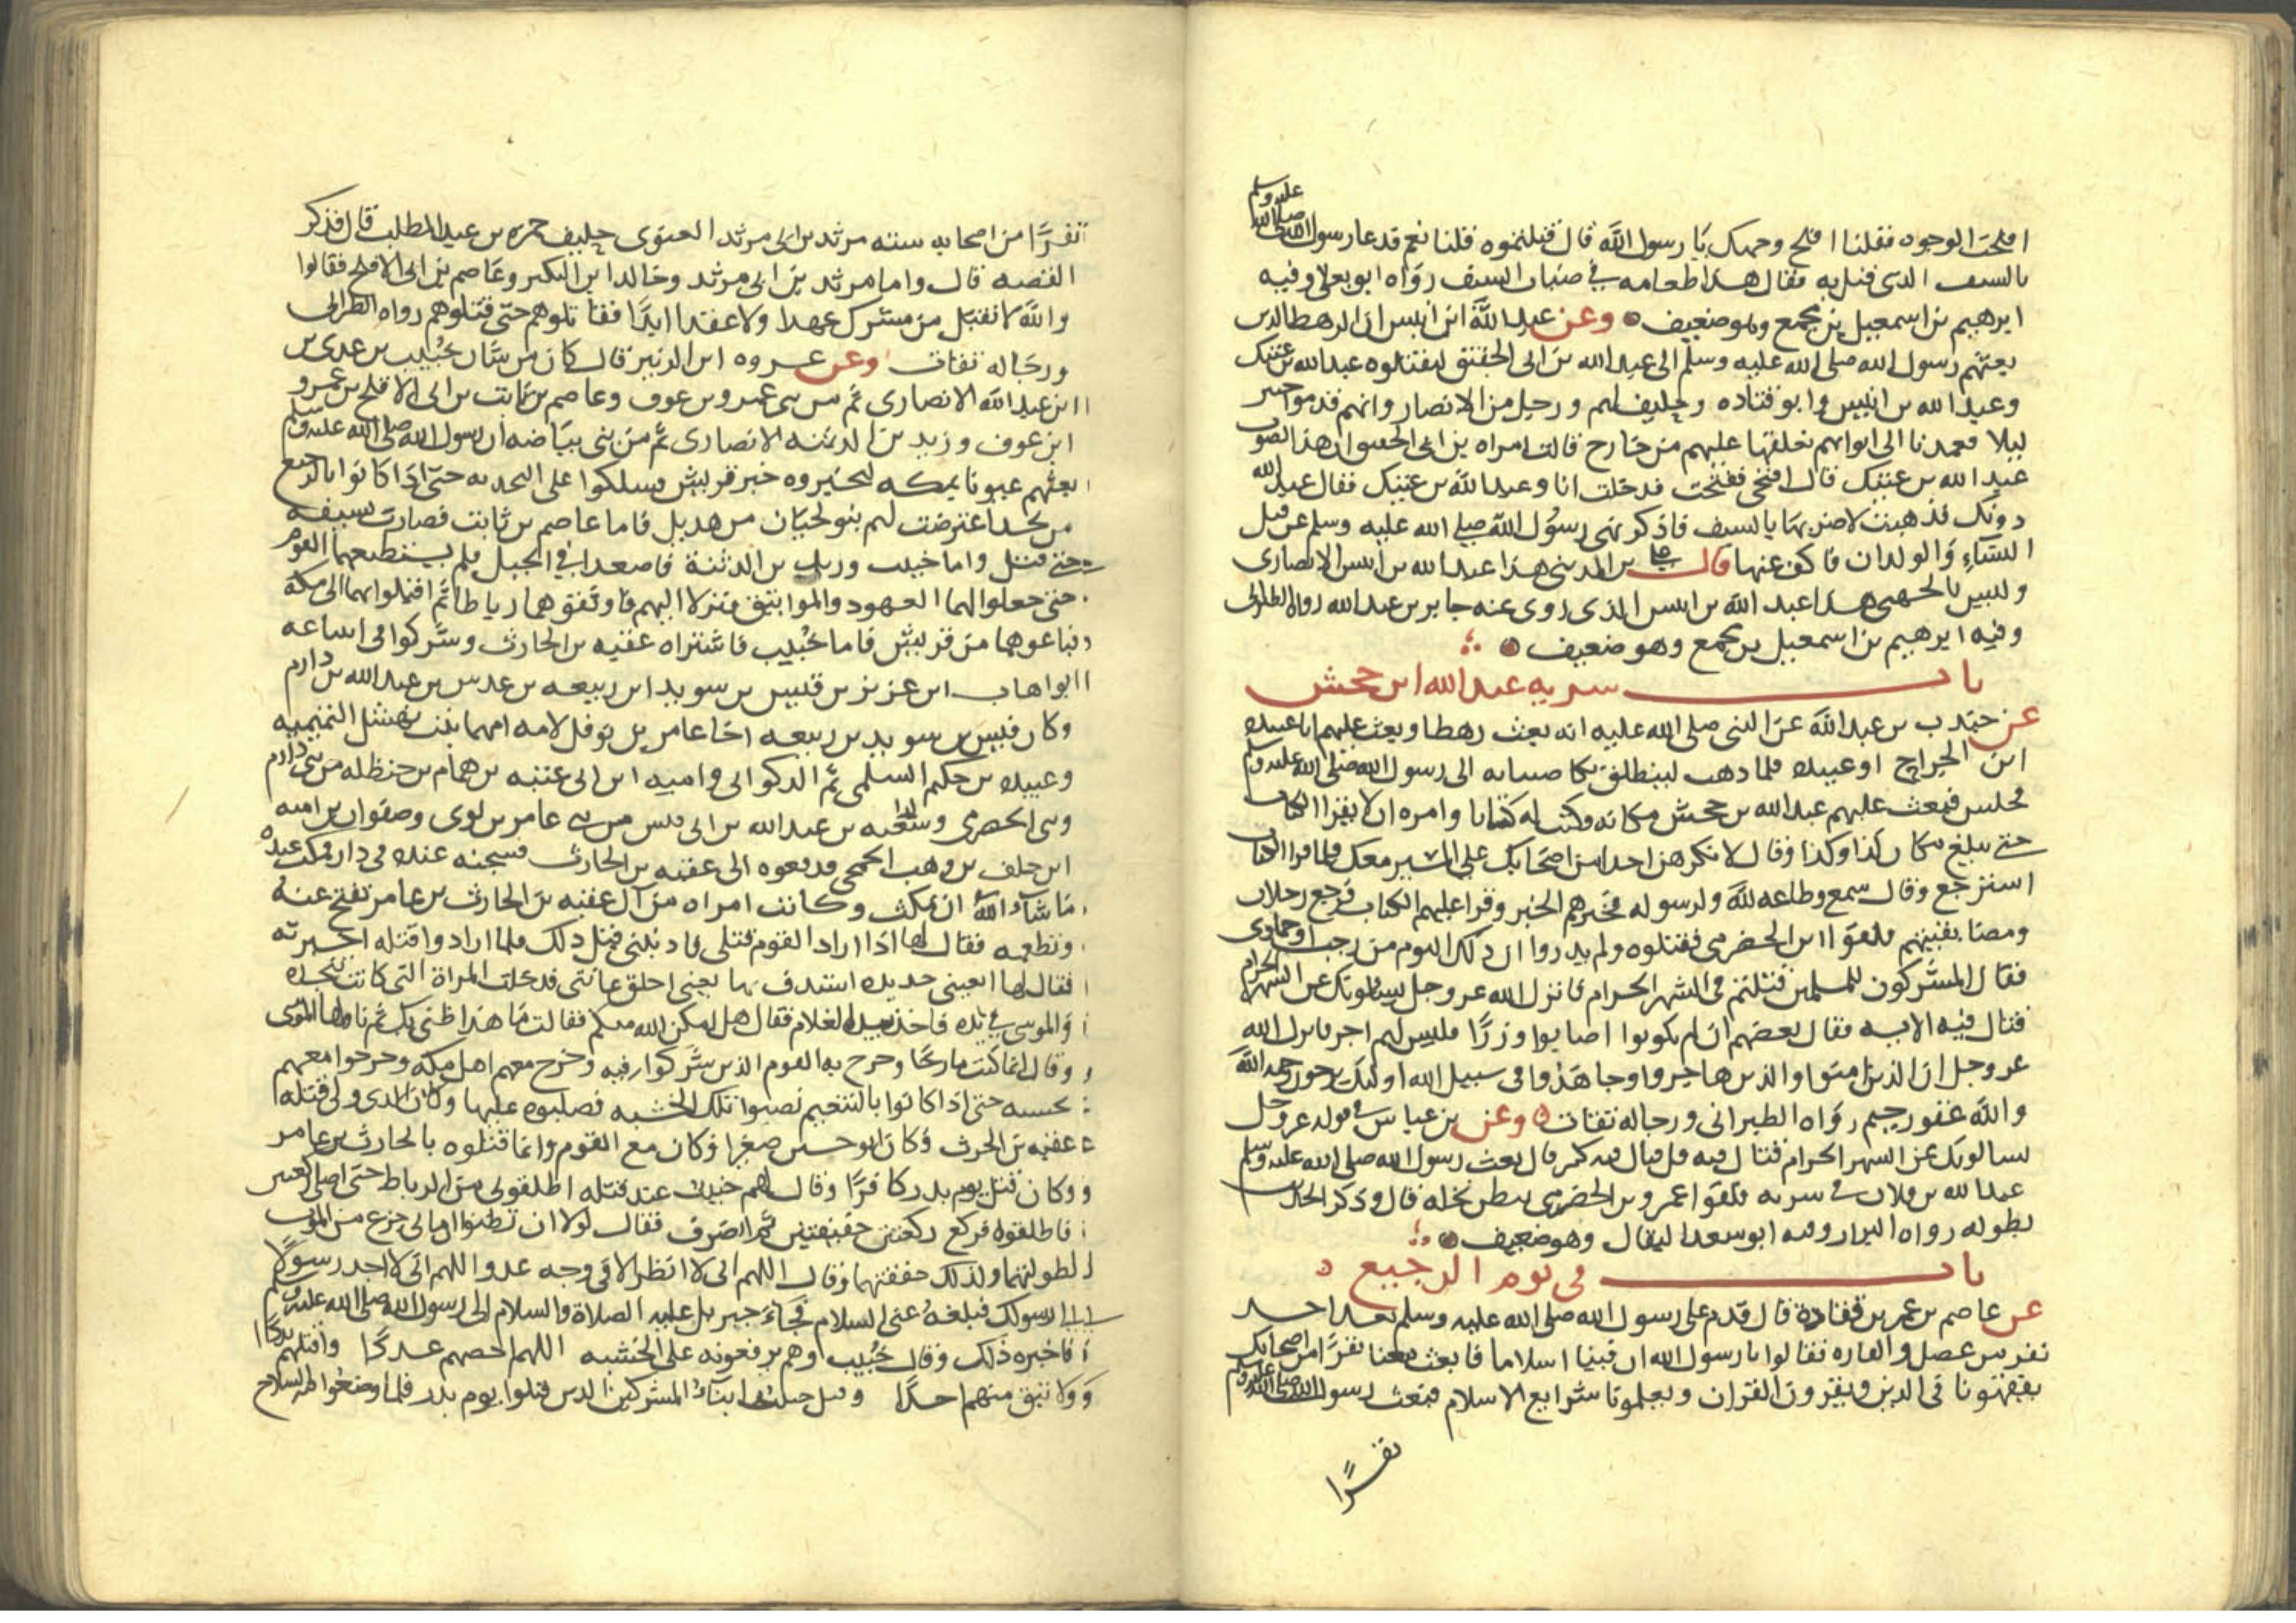 افلحت الوجوه فقلنا افلح وجهك يا رسول الله قال قتلتموه قلنا نعم فدعا رسول الله صلى الله عليه وسلم
بالسيف الذى قتل به فقال هذا طعامه فى ضباب السيف رواه ابو يعلى وفيه
ابرهيم بن اسمعيل بن مجمع وهو ضعيف وعن عبد الله ابن انيس ان الرهط الذين
بعثهم رسول الله صلى الله عليه وسلم الى عبد الله بن ابى الحقيق ليقتلوه عبد الله بن عتيك
وعبد الله بن انيس وابو قتاده وحليف لهم ورجل من الانصار وانهم قدموا خيبر
ليلا فعمدنا الى ابوابهم نغلقها عليهم من خارج قالت امراه بن ابى الحقيق ان هذا لصوت
عبد الله بن عتيك قال افتحى ففتحت فدخلت انا وعبد الله بن عتيك فقال عبد الله
دونك فذهبت لاضربها بالسيف فاذكر نهى رسول الله صلى الله عليه وسلم عن قتل
النساء والولدان فاكف عنها قال على بن المدينى هذا عبد الله بن انيس الانصارى
وليس بالجهنى هذا عبد الله بن انيس الذى روى عنه جابر بن عبد الله رواه الطبرانى
وفيه ابرهيم بن اسمعيل بن مجمع وهو ضعيف
باب سريه عبد الله ابن جحش
عن جندب بن عبد الله عن النبى صلى الله عليه انه بعث رهطا وبعث عليهم ابا عبيده
ابن الجراح او عبيده فلما ذهب لينطلق بكا صبابه الى رسول الله صلى الله عليه وسلم
فجلس فبعث عليهم عبد الله بن جحش مكانه وكتب له كتابا وامره ان لا يقرا الكتاب
حتى يبلغ مكان كذا وكذا وقال لا تكرهن احدا من اصحابك على المسير معك فلما قرا الكتاب
استرجع وقال سمع وطاعه لله ولرسوله فخبرهم الخبر وقرا عليهم الكتاب فرجع رجلان
ومضا بقيتهم فلقوا ابن الحضرمى فقتلوه ولم يدروا ان ذلك اليوم من رجب او جمادى
فقال المشركون للمسلمين قتلتم فى الشهر الحرام فانزل الله عز وجل يسالونك عن الشهر الحرام
قتال فيه الايه فقال بعضهم ان لم يكونوا اصابوا وزرًا فليس لهم اجر فانزل الله
عز وجل ان الذين امنوا والذين هاجروا وجاهدوا فى سبيل الله اولئك يرجون رحمه الله
والله غفور رحيم رواه الطبرانى ورجاله ثقات وعن بن عباس فى قوله عز وجل
يسالونك عن الشهر الحرام قتال فيه قل قتال فيه كبير قال بعث رسول الله صلى الله عليه وسلم
عبد الله بن فلان فى سريه فلقوا عمرو بن الحضرمى ببطن نخله قال وذكر الحديث
بطوله رواه البزار وفيه ابو سعد البقال وهو ضعيف
باب فى يوم الرجيع
عن عاصم بن عمر بن قتادة قال قدم على رسول الله صلى الله عليه وسلم بعد احد
نفر من عضل والقاره فقالوا يا رسول الله ان فينا اسلاما فابعث معنا نفرًا من اصحابك
يفقهونا فى الدين ويقرون القران ويعلمونا شرايع الاسلام فبعث رسول الله صلى الله عليه وسلم
نفرًا
نفرًا من اصحابه سته مرثد بن ابى مرثد الغنوى حليف حمزه بن عبد المطلب قال فذكر
القصه قال واما مرثد بن ابى مرثد وخالد ابن البكير وعاصم بن ابى الافلح فقالوا
والله لا نقبل من مشرك عهدا ولا عقدا ابدًا فقاتلوهم حتى قتلوهم رواه الطبرانى
ورجاله ثقات وعن عروه ابن الزبير قال كان من شان خبيب بن عدى بن
ابن عبد الله الانصارى ثم من بنى عمرو بن عوف وعاصم بن ثابت بن ابى الاقلح بن عمرو
ابن عوف وزيد بن الدثنه الانصارى ثم من بنى بياضه ان رسول الله صلى الله عليه وسلم
بعثهم عيونا بمكه ليخبروه خبر قريش فسلكوا على النجديه حتى اذا كانوا بالرجيع
من نجد اعترضت لهم بنو لحيان من هذيل فاما عاصم بن ثابت فضارب بسيفه
حتى قتل واما خبيب وزيد بن الدثنة فاصعدا فى الجبل فلم يستطعهما القوم
حتى جعلوا لهما العهود والمواثيق فنزلا اليهم فاوثقوهما رباطا ثم اقبلوا بهما الى مكة
فباعوهما من قريش فاما خبيب فاشتراه عقبه بن الحارث وشركوا فى ابتياعه
ابو اهاب ابن عزيز بن قيس بن سويد ابن ربيعه بن عدس بن عبد الله بن دارم
وكان قيس بن سويد بن ربيعه اخا عامر بن نوفل لامه امهما بنت نهشل التميميه
وعبيده بن حكيم السلمى ثم الذكوانى واميه ابن ابى عتبه بن همام بن حنظله من بنى دارم
وبنى الحضرمى وشعبه بن عبد الله بن ابى قيس من بنى عامر بن لوى وصفوان بن اميه
ابن خلف بن وهب الجمحى فدفعوه الى عقبه بن الحارث فسجنه عنده فى دار فمكث عنده
ما شاء الله ان يمكث وكانت امراه من آل عقبه بن الحارث بن عامر تفتح عنه
وتطعمه فقال لها اذا اراد القوم قتلى فاذنينى قبل ذلك فلما ارادوا قتله اخبرته
فقال لها ابغينى حديده استدف بها يعنى احلق عانتى فدخلت المراة التى كانت تنجده
والموسى فى يده فاخذ بيد الغلام فقال هل امكن الله منكم فقالت ما هذا ظنى بك ثم ناولها الموسى
وقال انما كنت مازحًا وخرج به القوم الذين شركوا فيه وخرج معهم اهل مكه وخرجوا معهم
بخشبه حتى اذا كانوا بالتنعيم نصبوا تلك الخشبه فصلبوه عليها وكان الذى ولى قتله
عقبه بن الحرث وكان ابو حسين صغيرا وكان مع القوم وانما قتلوه بالحارث بن عامر
وكان قتل يوم بدر كافرًا وقال لهم خبيب عند قتله اطلقونى من الرباط حتى اصلى ركعتين
فاطلقوه فركع ركعتين خفيفتين ثم انصرف فقال لولا ان تظنوا ان بى جزع من الموت
لطولتهما ولذلك خففتهما وقال اللهم انى لا انظر الا فى وجه عدو اللهم انى لا اجد رسولًا
الى رسولك فبلغه عنى السلام فجاء جبريل عليه الصلاة والسلام الى رسول الله صلى الله عليه وسلم
فاخبره ذلك وقال خبيب وهم يرفعونه على الخشبه اللهم احصهم عددًا واقتلهم بددًا
ولا تبق منهم احدًا وقتل خبيب ابناء المشركين الذين قتلوا يوم بدر فلما وضعوا فيه السلاح